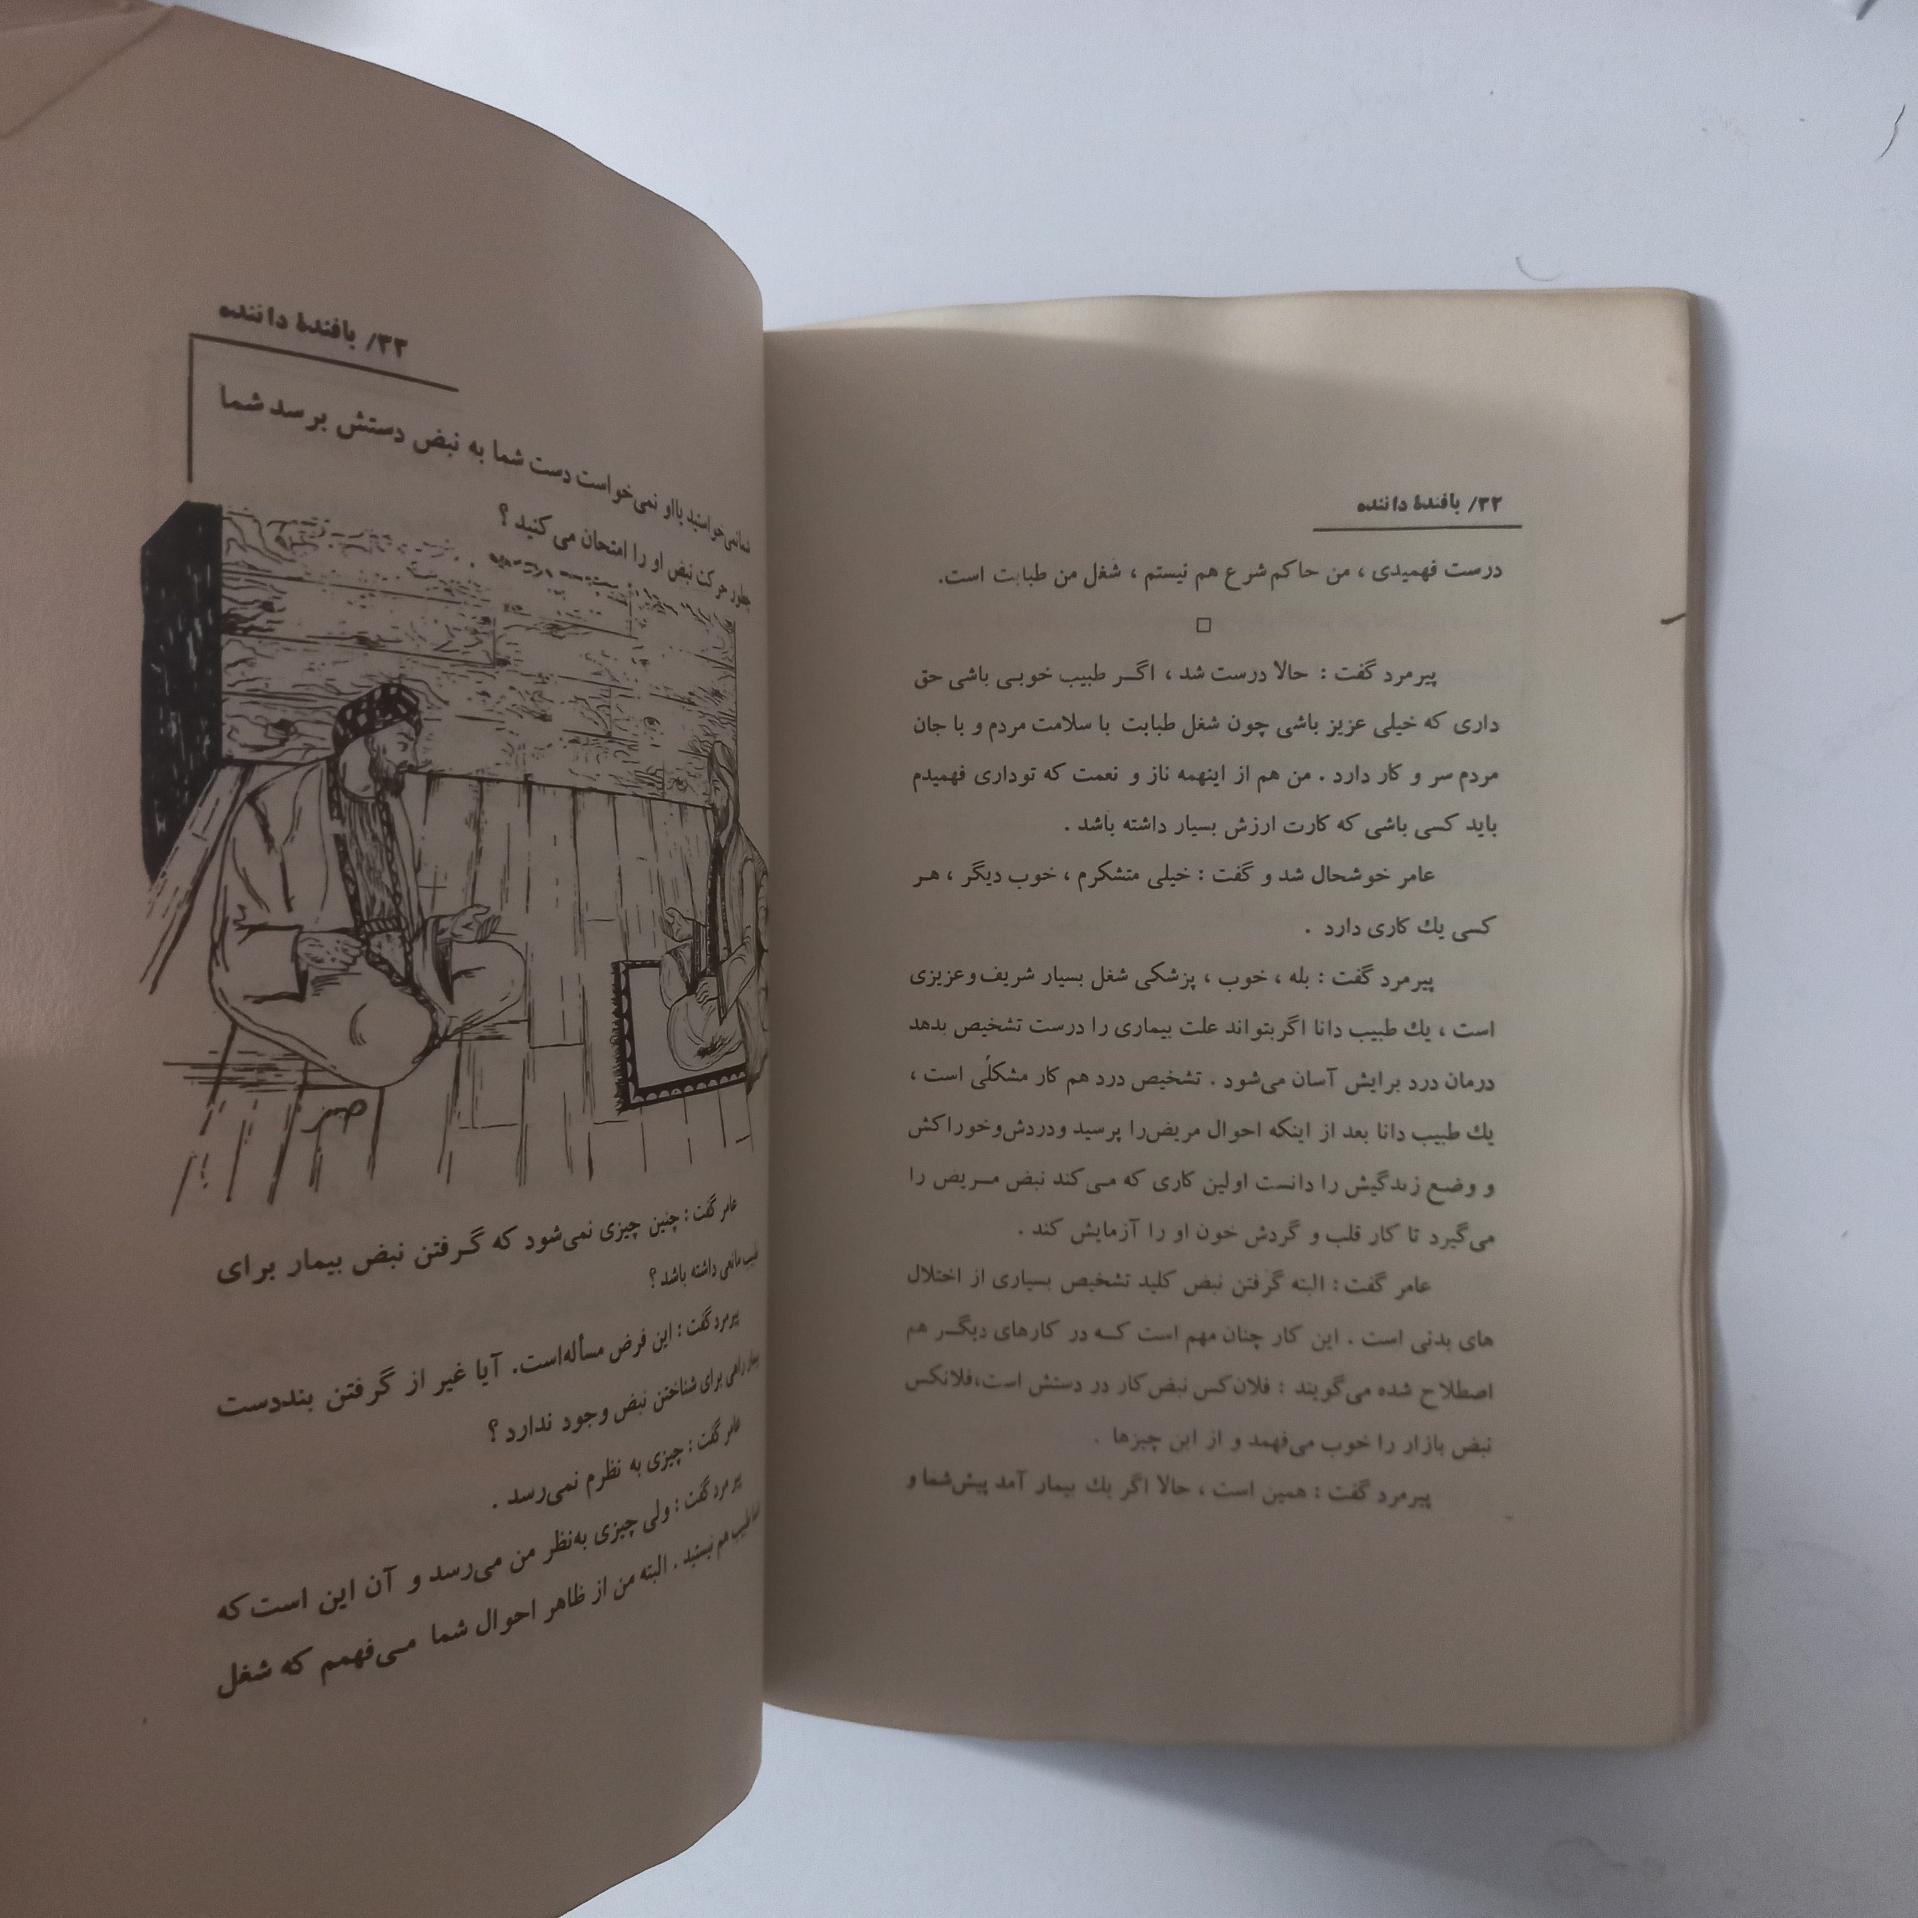 ۳۲/ بافندهٔ داننده
درست فهمیدی ، من حاکم شرع هم نیستم ، شغل من طبابت است.
پیرمرد گفت : حالا درست شد ، اگر طبیب خوبی باشی حق
داری که خیلی عزیز باشی چون شغل طبابت با سلامت مردم و با جان
مردم سر و کار دارد . من هم از اینهمه ناز و نعمت که توداری فهمیدم
باید کسی باشی که کارت ارزش بسیار داشته باشد .
عامر خوشحال شد و گفت : خیلی متشکرم ، خوب دیگر ، هر
کسی یك کاری دارد .
پیرمرد گفت : بله ، خوب ، پزشکی شغل بسیار شریف وعزیزی
است ، یك طبیب دانا اگربتواند علت بیماری را درست تشخیص بدهد
درمان درد برایش آسان می‌شود . تشخیص درد هم کار مشکلی است ،
یك طبیب دانا بعد از اینکه احوال مریض‌را پرسید ودردش‌وخوراکش
و وضع زندگیش را دانست اولین کاری که می‌کند نبض مریض را
می‌گیرد تا کار قلب و گردش خون او را آزمایش کند .
عامر گفت : البته گرفتن نبض کلید تشخیص بسیاری از اختلال
های بدنی است . این کار چنان مهم است که در کارهای دیگر هم
اصطلاح شده می‌گویند : فلان‌کس نبض‌کار در دستش است،فلانکس
نبض بازار را خوب می‌فهمد و از این چیزها .
پیرمرد گفت : همین است ، حالا اگر یك بیمار آمد پیش‌شما و
۳۳/ بافندهٔ داننده
شمانمی‌خواستید یااو نمی‌خواست دست شما به نبض دستش برسد شما
چطور حرکت نبض او را امتحان می‌کنید ؟
عامر گفت : چنین چیزی نمی‌شود که گرفتن نبض بیمار برای
طبیب مانعی داشته باشد ؟
پیرمرد گفت : این فرض مسأله‌است. آیا غیر از گرفتن بنددست
بیمار راهی برای شناختن نبض وجود ندارد ؟
عامر گفت : چیزی به نظرم نمی‌رسد .
پیرمرد گفت : ولی چیزی به‌نظر من می‌رسد و آن این است‌که
شما طبیب هم نیستید . البته من از ظاهر احوال شما می‌فهمم که شغل